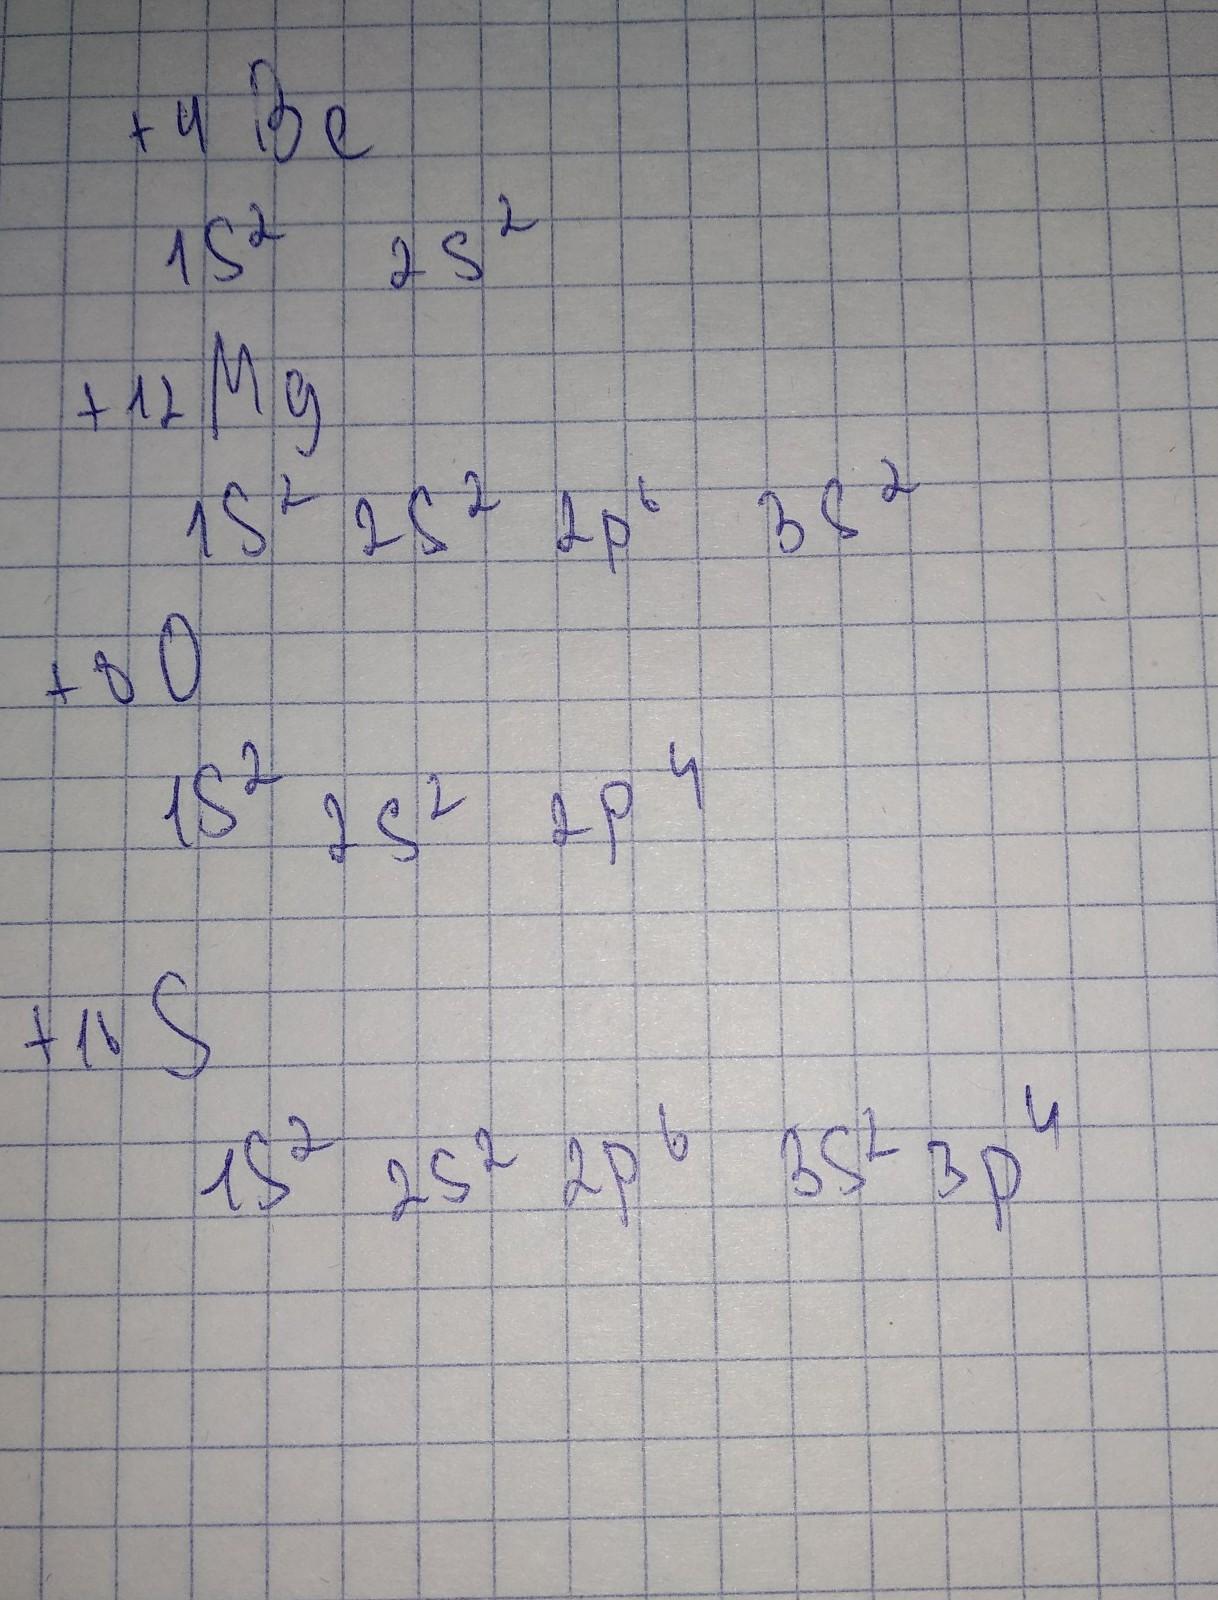 +4 Be
1s² 2s²
+12 Mg
1s² 2s² 2p⁶ 3s²
+8 O
1s² 2s² 2p⁴
+16 S
1s² 2s² 2p⁶ 3s² 3p⁴